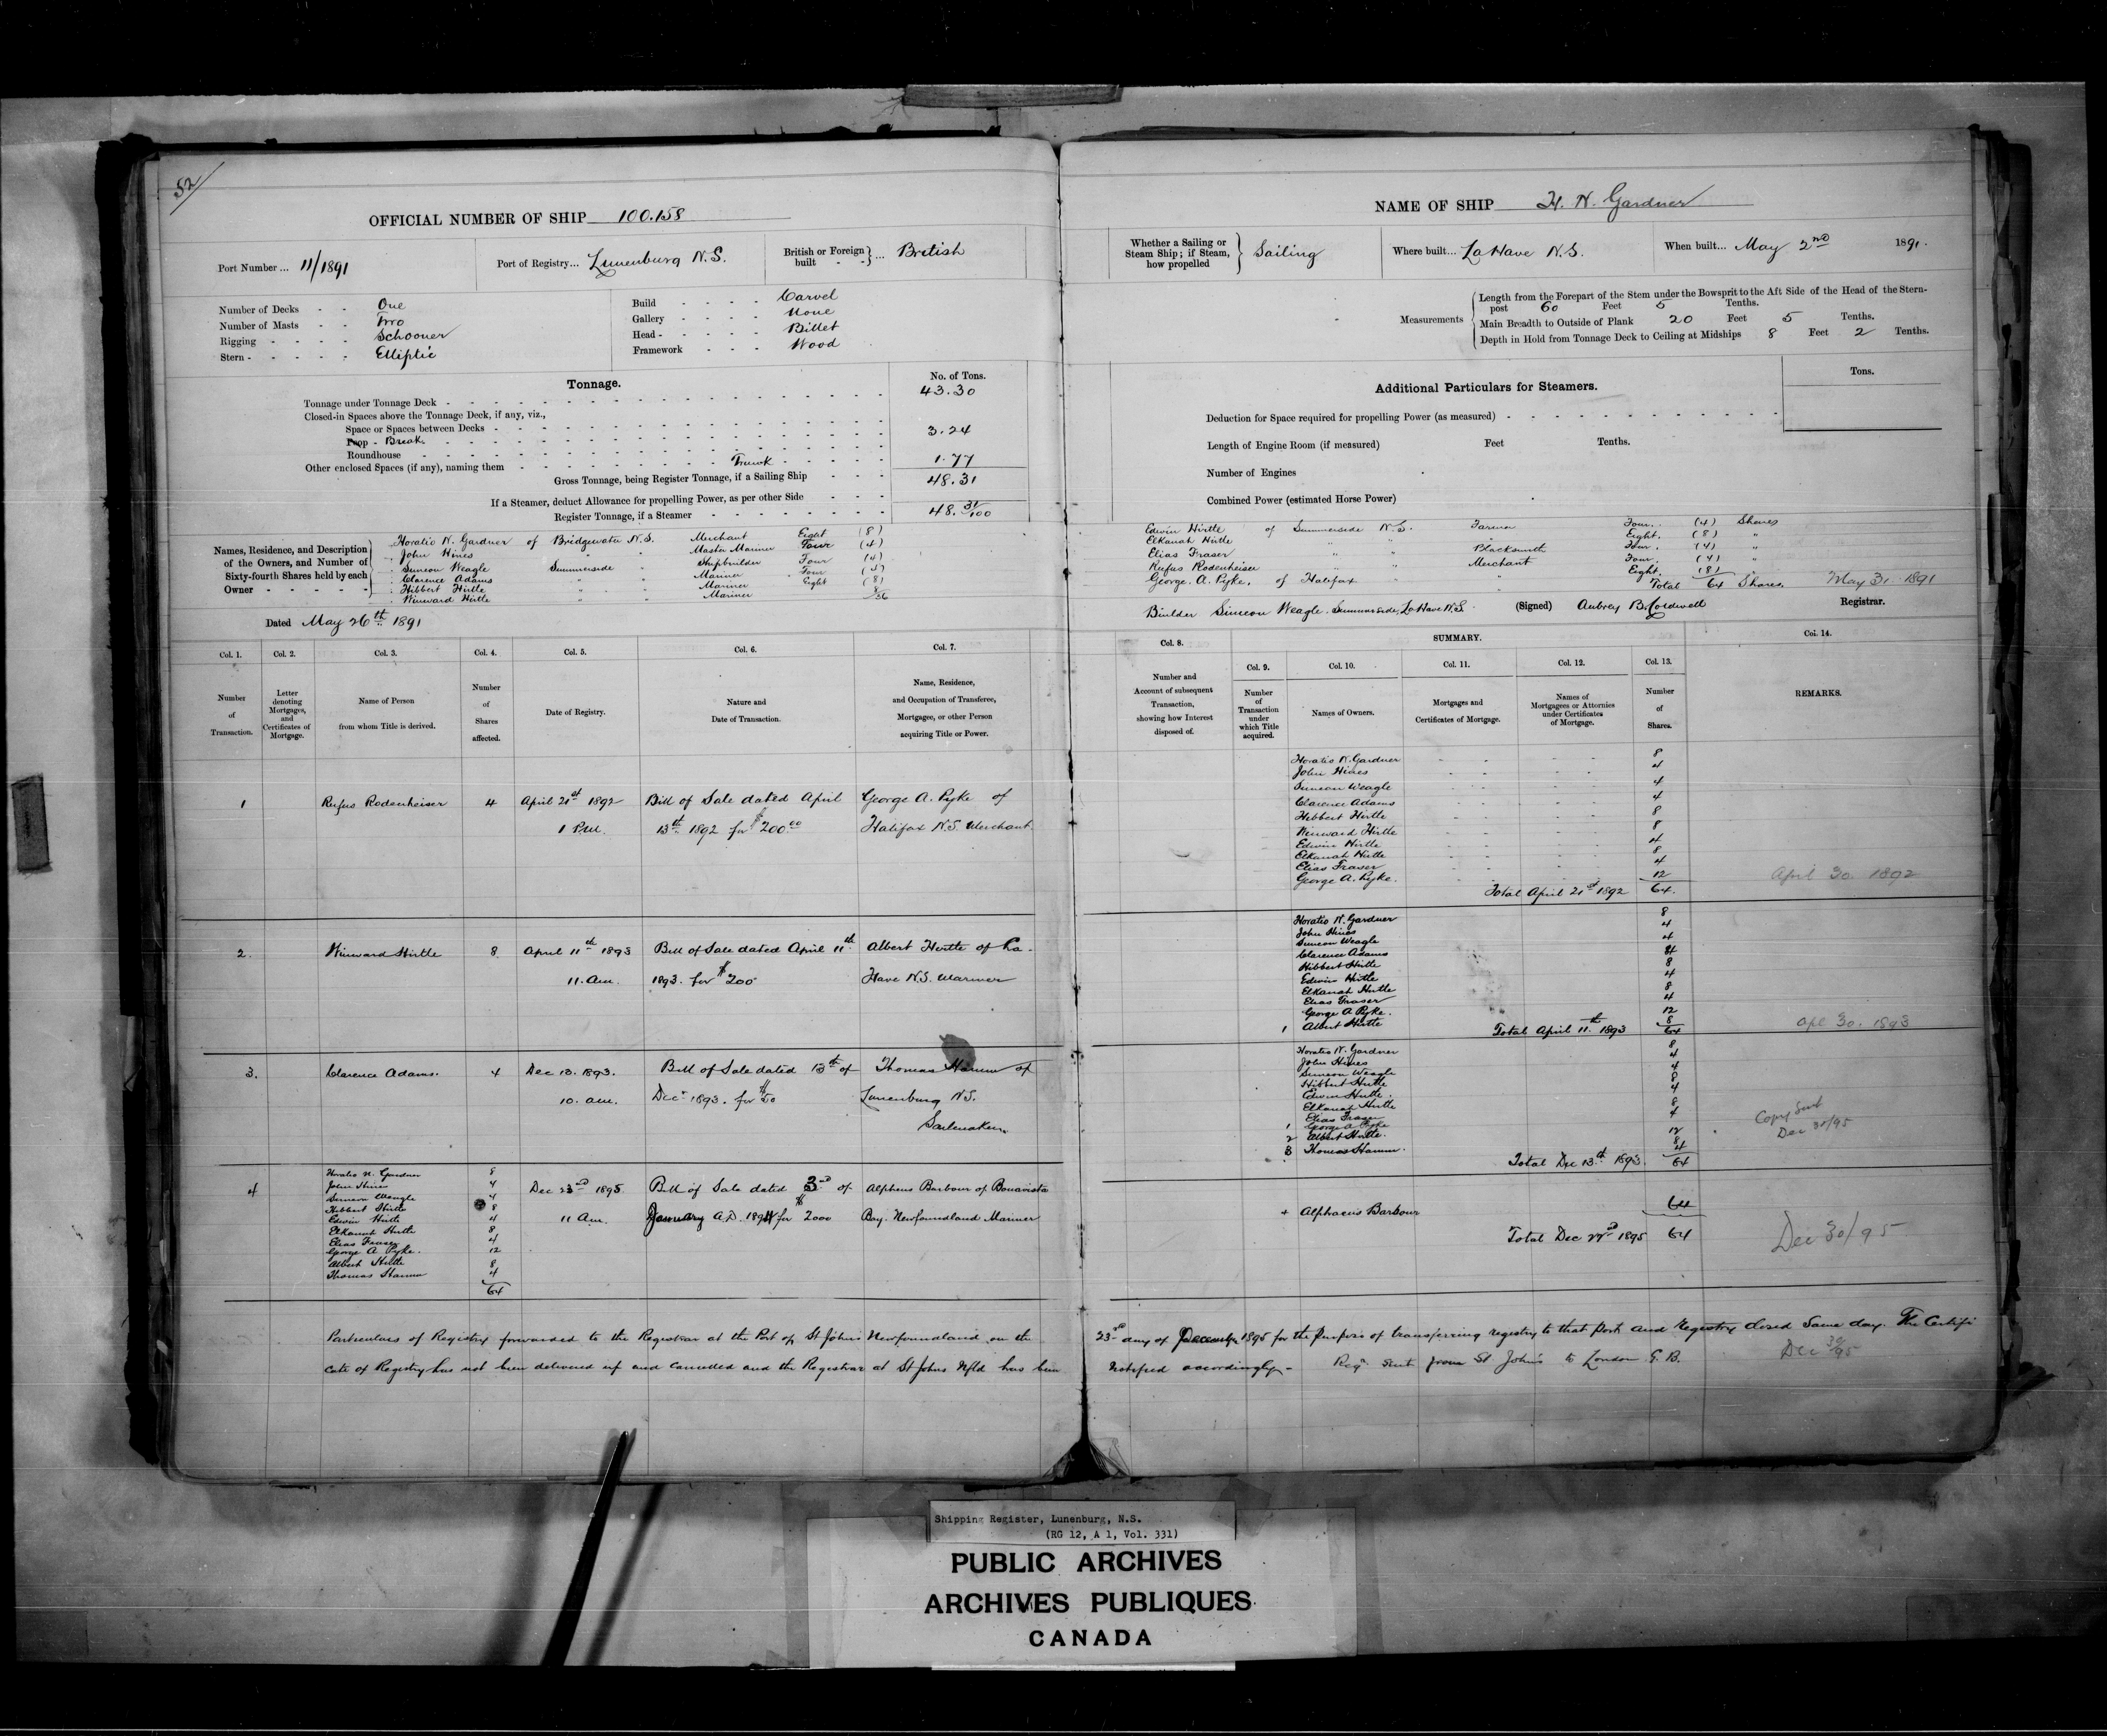 52
OFFICIAL NUMBER OF SHIP 100.158
Port Number ... 11/1891
Port of Registry... Lunenburg N.S.
British or Foreign built } ... British
Number of Decks - - One
Number of Masts - - Two
Rigging - - - - Schooner
Stern - - - - - Elliptic
Build - - - - Carvel
Gallery - - - - None
Head - - - - - Billet
Framework - - - Wood
Tonnage.
No. of Tons.
Tonnage under Tonnage Deck - 43.30
Closed-in Spaces above the Tonnage Deck, if any, viz.,
Space or Spaces between Decks -
Poop - Break 3.24
Roundhouse
Other enclosed Spaces (if any), naming them - Trunk - 1.77
Gross Tonnage, being Register Tonnage, if a Sailing Ship - - - 48.31
If a Steamer, deduct Allowance for propelling Power, as per other Side - - -
Register Tonnage, if a Steamer - 48.31/100
Names, Residence, and Description of the Owners, and Number of Sixty-fourth Shares held by each Owner - - - - -
Horatio N. Gardner of Bridgewater N.S. Merchant Eight (8)
John Hines " " Master Mariner Four (4)
Simeon Weagle Summerside " Shipbuilder Four (4)
Clarence Adams " " Mariner Four (4)
Hibbert Hirtle " " Mariner Eight (8)
Winward Hirtle " " Mariner 8/36
Dated May 26th 1891
NAME OF SHIP H. N. Gardner
Whether a Sailing or Steam Ship; if Steam, how propelled } Sailing
Where built... LaHave N.S.
When built... May 2nd 1891.
Measurements
Length from the Forepart of the Stem under the Bowsprit to the Aft Side of the Head of the Stern-
post 60 Feet 5 Tenths.
Main Breadth to Outside of Plank 20 Feet 5 Tenths.
Depth in Hold from Tonnage Deck to Ceiling at Midships 8 Feet 2 Tenths.
Additional Particulars for Steamers.
Tons.
Deduction for Space required for propelling Power (as measured) -
Length of Engine Room (if measured) Feet Tenths.
Number of Engines
Combined Power (estimated Horse Power)
Edwin Hirtle of Summerside N.S. Farmer Four. (4) Shares
Elkanah Hirtle " " " Eight. (8) "
Elias Fraser " " Blacksmith Four. (4) "
Rufus Rodenheiser " " Merchant Four. (4) "
George. A. Pyke, of Halifax " " Eight. (8) "
Total 64 Shares. May 31. 1891
Builder Simeon Weagle. Summerside, LaHave N.S. (Signed) Aubrey B. Caldwell Registrar.
Col. 1. Number of Transaction.
Col. 2. Letter denoting Mortgages, and Certificates of Mortgage.
Col. 3. Name of Person from whom Title is derived.
Col. 4. Number of Shares affected.
Col. 5. Date of Registry.
Col. 6. Nature and Date of Transaction.
Col. 7. Name, Residence, and Occupation of Transferee, Mortgagee, or other Person acquiring Title or Power.
Col. 8. Number and Account of subsequent Transaction, showing how Interest disposed of.
SUMMARY.
Col. 9. Number of Transaction under which Title acquired.
Col. 10. Names of Owners.
Col. 11. Mortgages and Certificates of Mortgage.
Col. 12. Names of Mortgagees or Attornies under Certificates of Mortgage.
Col. 13. Number of Shares.
Col. 14. REMARKS.
1 Rufus Rodenheiser 4 April 21st 1892 Bill of Sale dated April George A. Pyke of
1 P.M. 13th 1892 for $200.00 Halifax N.S. Merchant
Horatio N. Gardner 8
John Hines 4
Simeon Weagle 4
Clarence Adams 4
Hibbert Hirtle 8
Winward Hirtle 8
Edwin Hirtle 4
Elkanah Hirtle 8
Elias Fraser 4
George A. Pyke. 12
Total April 21st 1892 64. April 30. 1892
2. Winward Hirtle 8 April 11th 1893 Bill of Sale dated April 11th Albert Hirtle of La
11. am. 1893. for $200 Have N.S. Mariner
Horatio N. Gardner 8
John Hines 4
Simeon Weagle 4
Clarence Adams 4
Hibbert Hirtle 8
Edwin Hirtle 4
Elkanah Hirtle 8
Elias Fraser 4
George A Pyke. 12
1 Albert Hirtle 8
Total April 11th 1893 64 Apl 30. 1893
3. Clarence Adams. 4 Dec 13. 1893. Bill of Sale dated 13th of Thomas Hamm of
10. am. Decr 1893. for $50 Lunenburg N.S.
Sailmaker.
Horatio N. Gardner 8
John Hines 4
Simeon Weagle 4
Hibbert Hirtle 8
Edwin Hirtle. 4
Elkanah Hirtle 8
Elias Fraser 4
1 George A Pyke 12
2 Albert Hirtle. 8
3 Thomas Hamm. 4
Total Dec 13th 1893. 64
Copy Sent
Dec 31/95
4 Horatio N. Gardner 8 Dec 23rd 1895 Bill of Sale dated 3rd of Alpheus Barbour of Bonavista
John Hines 4 11 Am. January A.D. 1894 for $2000 Bay. Newfoundland Mariner
Simeon Weagle 4
Hibbert Hirtle 8
Edwin Hirtle 4
Elkanah Hirtle 8
Elias Fraser 4
George A Pyke. 12
Albert Hirtle 8
Thomas Hamm 4
64
4 Alphaeus Barbour 64
Total Dec 23rd 1895 64 Dec 30/95
Particulars of Registry forwarded to the Registrar at the Port of St Johns Newfoundland on the 23rd day of December 1895 for the purpose of transferring registry to that Port and Registry closed Same day. The Certifi
cate of Registry has not been delivered up and cancelled and the Registrar at St Johns Nfld has been notified accordingly - Regr. sent from St John's to London G.B. Dec 30/95
Shipping Register, Lunenburg, N.S.
(RG 12, A 1, Vol. 331)
PUBLIC ARCHIVES
ARCHIVES PUBLIQUES
CANADA